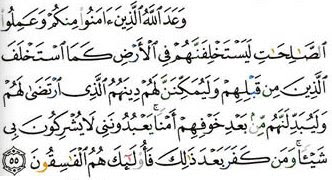 وَعَدَ ٱللَّهُ ٱلَّذِينَ ءَامَنُوا۟ مِنكُمْ وَعَمِلُوا۟
ٱلصَّـٰلِحَـٰتِ لَيَسْتَخْلِفَنَّهُمْ فِى ٱلْأَرْضِ كَمَا ٱسْتَخْلَفَ
ٱلَّذِينَ مِن قَبْلِهِمْ وَلَيُمَكِّنَنَّ لَهُمْ دِينَهُمُ ٱلَّذِى ٱرْتَضَىٰ لَهُمْ
وَلَيُبَدِّلَنَّهُم مِّنۢ بَعْدِ خَوْفِهِمْ أَمْنًا ۚ يَعْبُدُونَنِى لَا يُشْرِكُونَ بِى
شَيْـًٔا ۚ وَمَن كَفَرَ بَعْدَ ذَٰلِكَ فَأُو۟لَـٰٓئِكَ هُمُ ٱلْفَـٰسِقُونَ ٥٥